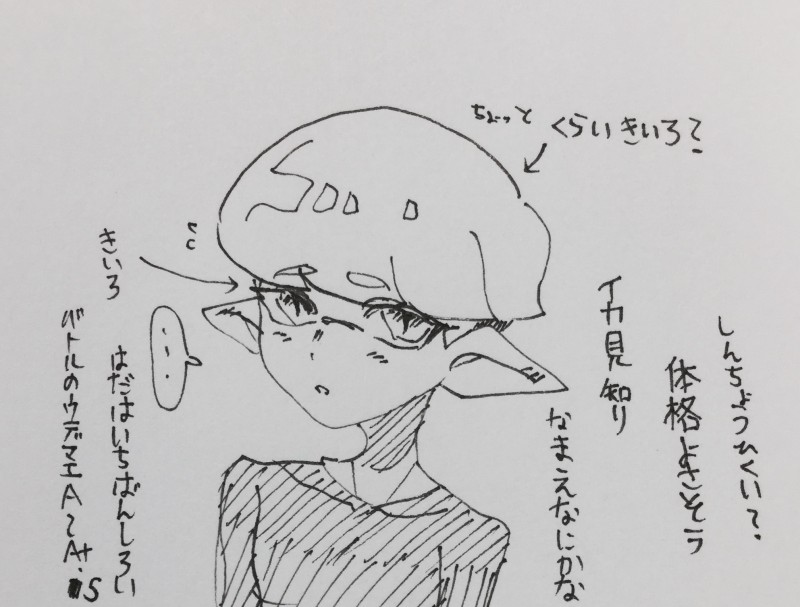 ちょっと くらいきいろ?
しんちょうひくい?
体格よさそう
イカ見知り
なまえなにかな
きいろ
・・・
はだはいちばんしろい
バトルのウデマエA〜A+・S